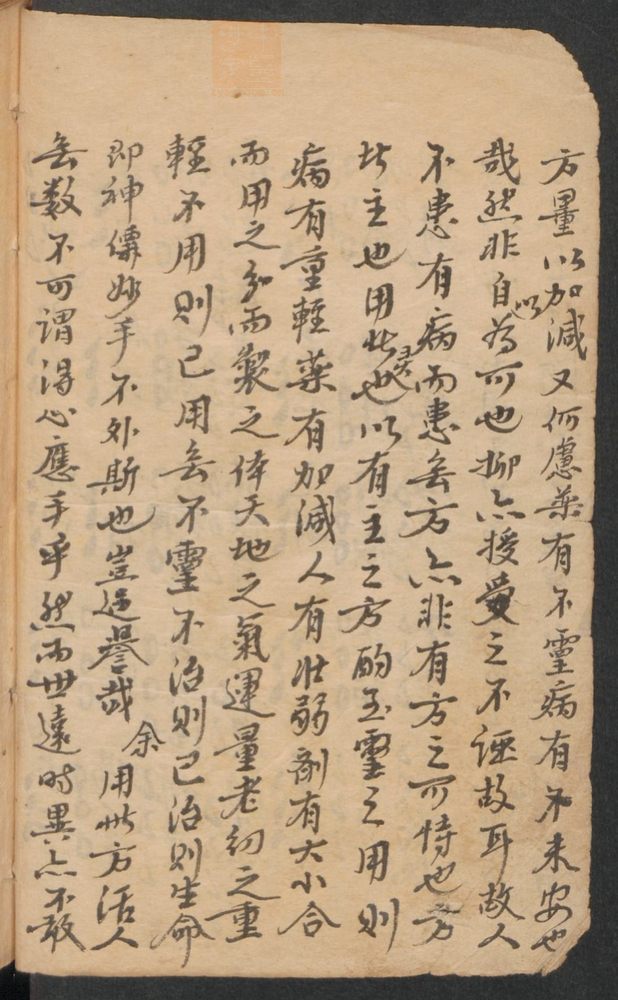 方量以加減又何慮薬有不靈病有不未安也
哉然非自以為可也抑亦授受之不誣故耳故人
不患有病而患无方亦非有方之可恃也方
者主也用者灵也以有主之方酌至靈之用則
病有重輕薬有加減人有壯弱劑有大小合
而用之分而製之体天地之氣運量老幼之重
輕不用則已用无不靈不治則已治則生命
即神儒妙手不外斯也豈過譽哉余用此方活人
无数不可謂得心應手乎然而世遠時異亦不敢